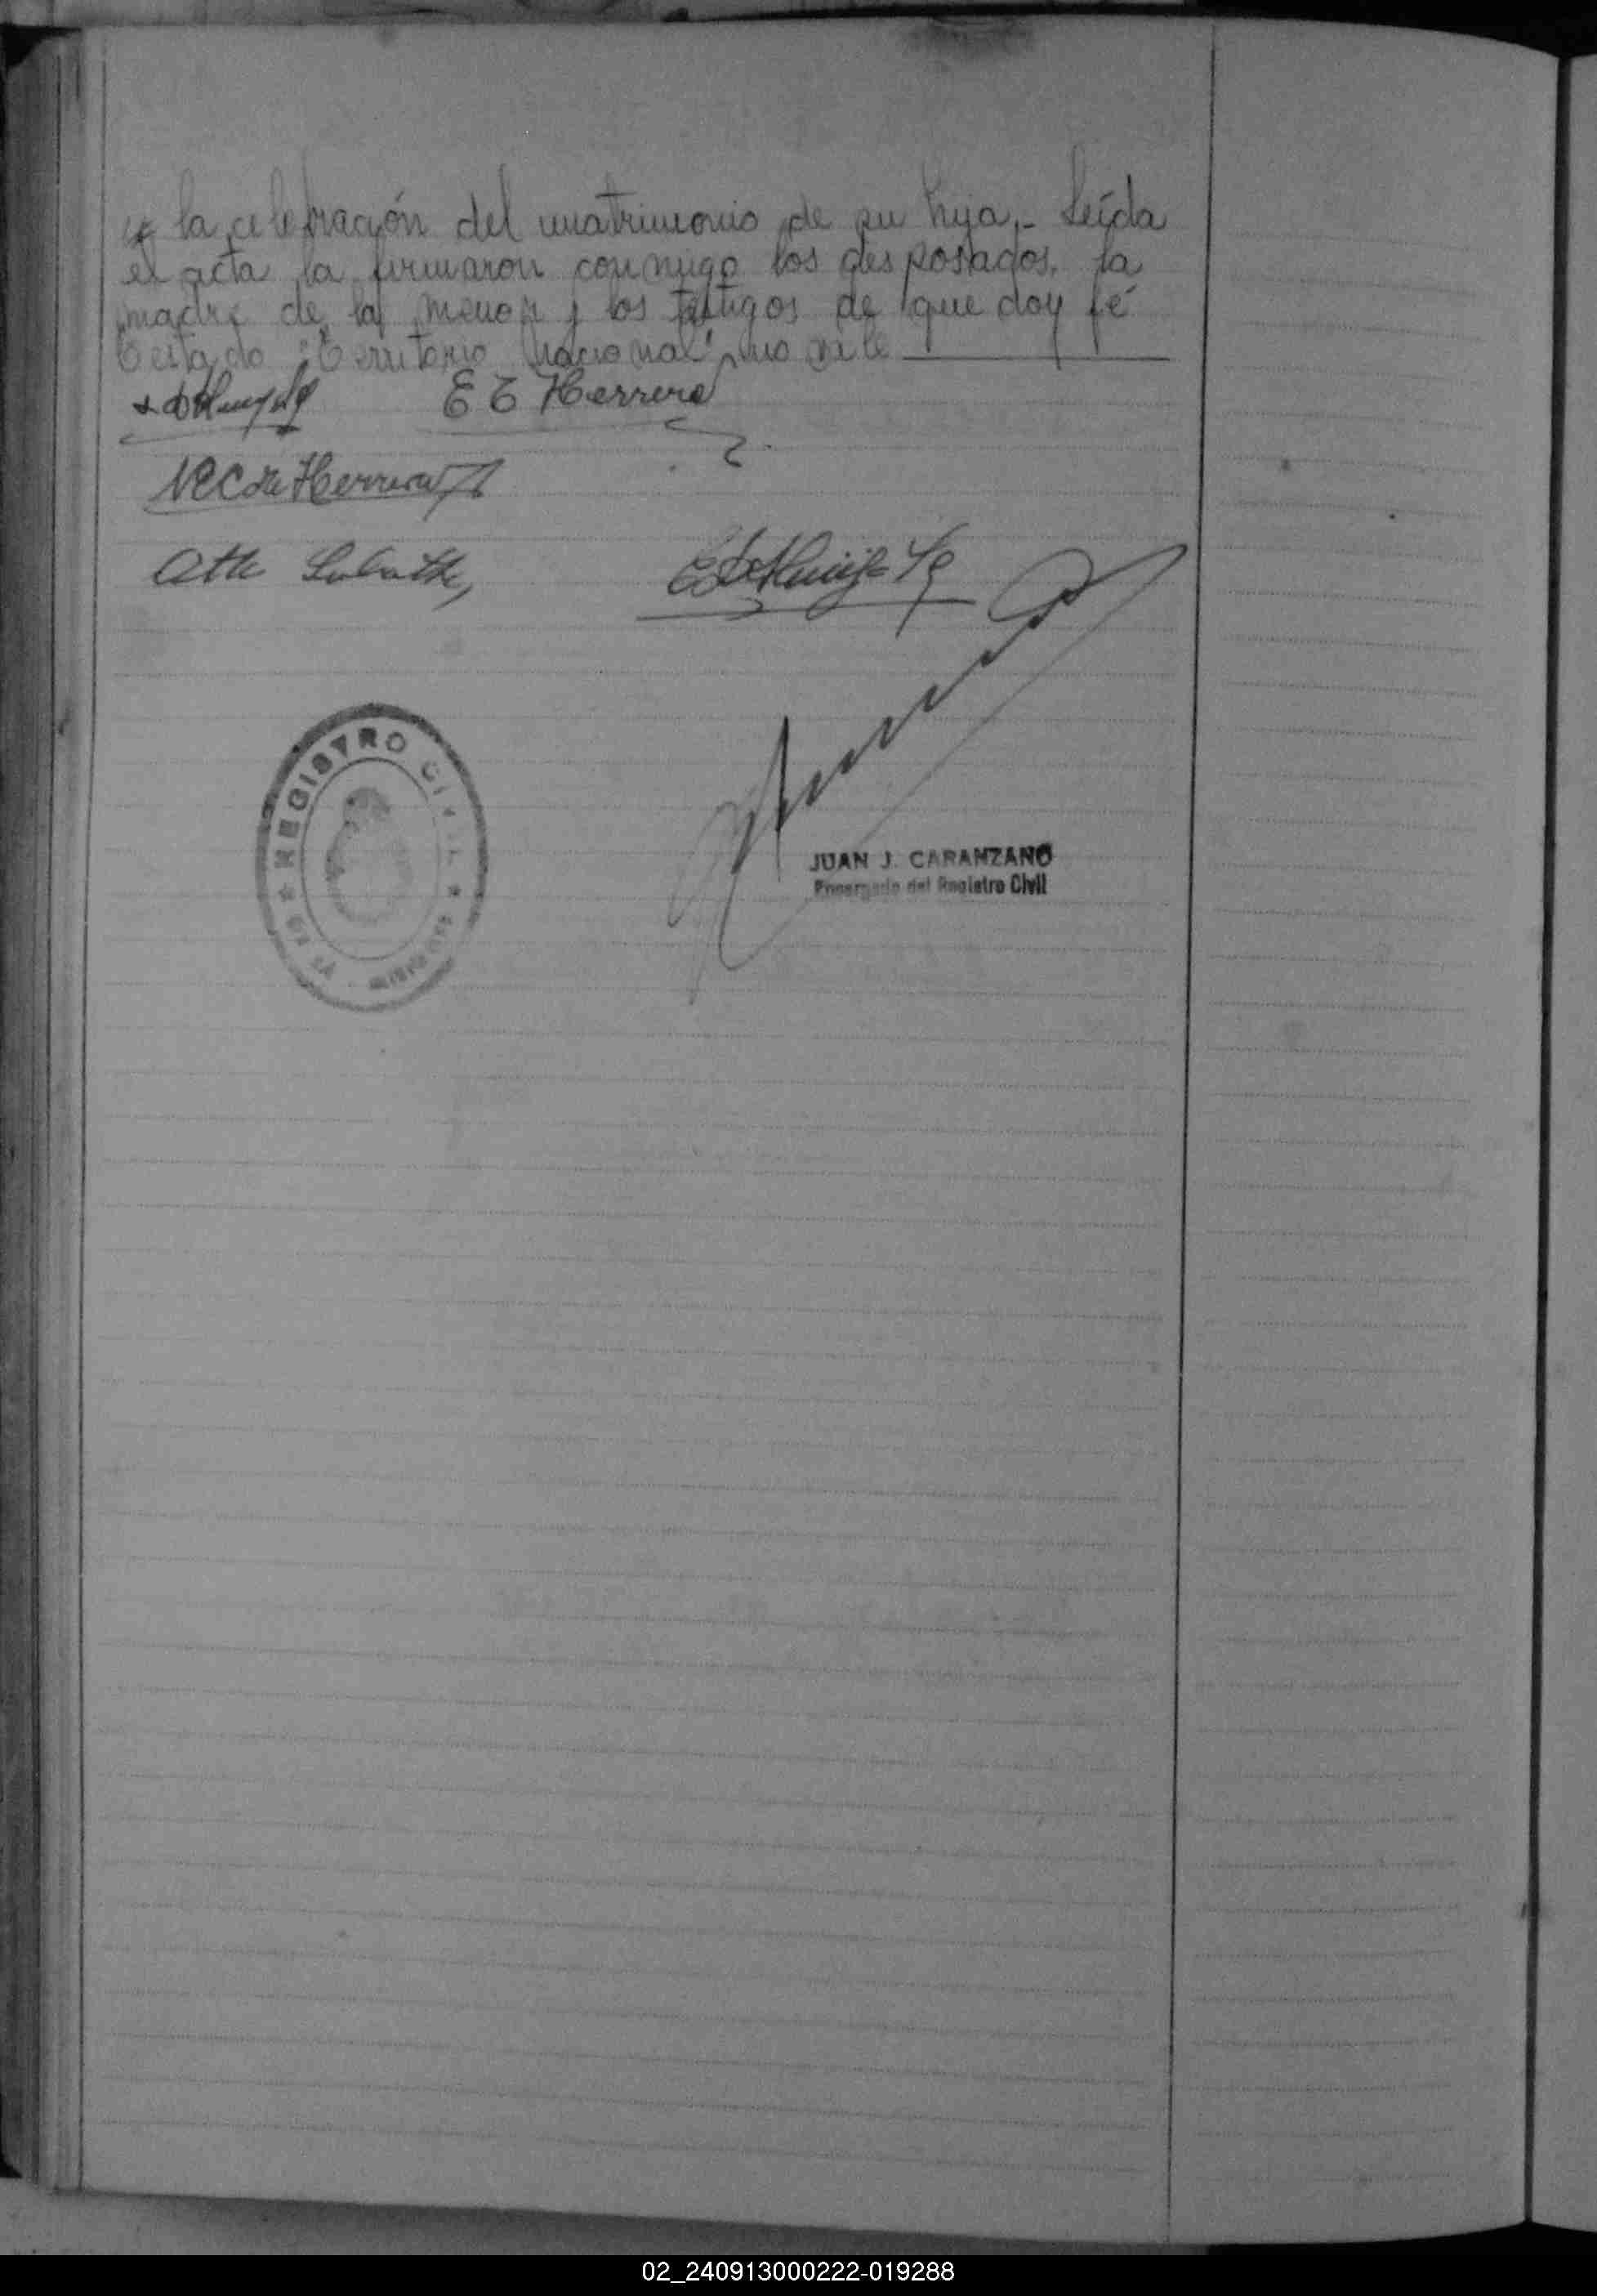 la celebración del matrimonio de su hija.- Leída
el acta la firmaron conmigo los desposados, la
madre de la menor y los testigos de que doy fé
Testado: "Territorio Nacional", no vale
E T Herrera
N C de Herrera
REGISTRO CIVIL
JUAN J. CARANZANO
Encargado del Registro Civil
02_240913000222-019288